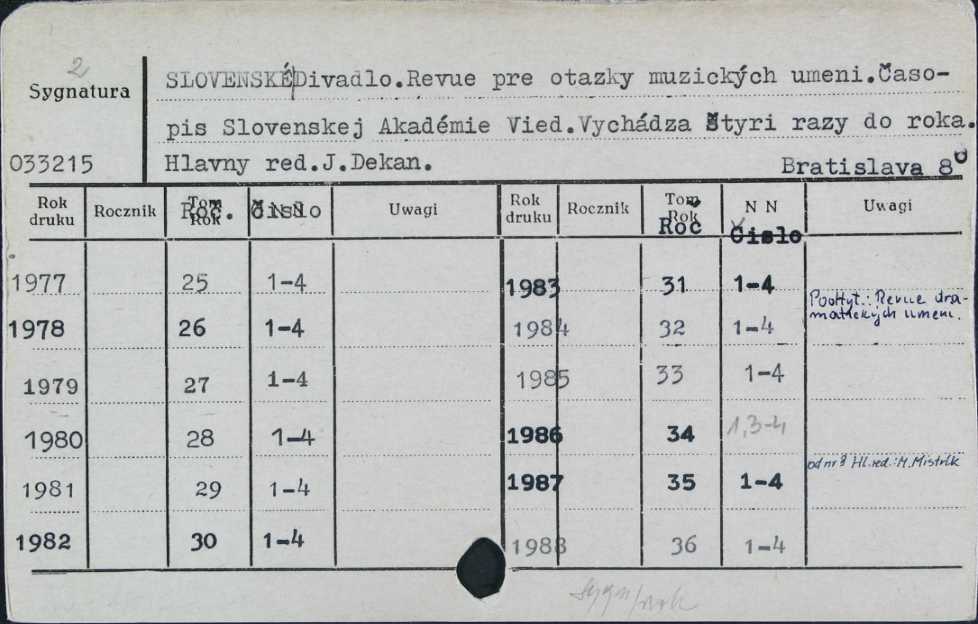 2
Sygnatura
033215
SLOVENSKÉ Divadlo.Revue pre otazky muzických umeni.Časo-
pis Slovenskej Akadémie Vied.Vychádza štyri razy do roka.
Hlavny red.J.Dekan.
Bratislava 8°
Rok druku Rocznik Tom Rok Roč. N N Čislo Uwagi Rok druku Rocznik Tom Rok Roč N N Čislo Uwagi
1977 25 1-4 1983 31 1-4
1978 26 1-4 1984 32 1-4 Podtyt.: Revue dra-
matických umeni.
1979 27 1-4 1985 33 1-4
1980 28 1-4 1986 34 1,3-4
1981 29 1-4 1987 35 1-4 od nr 3 Hl.red.: M.Mistrík
1982 30 1-4 1988 36 1-4
sygn/rok